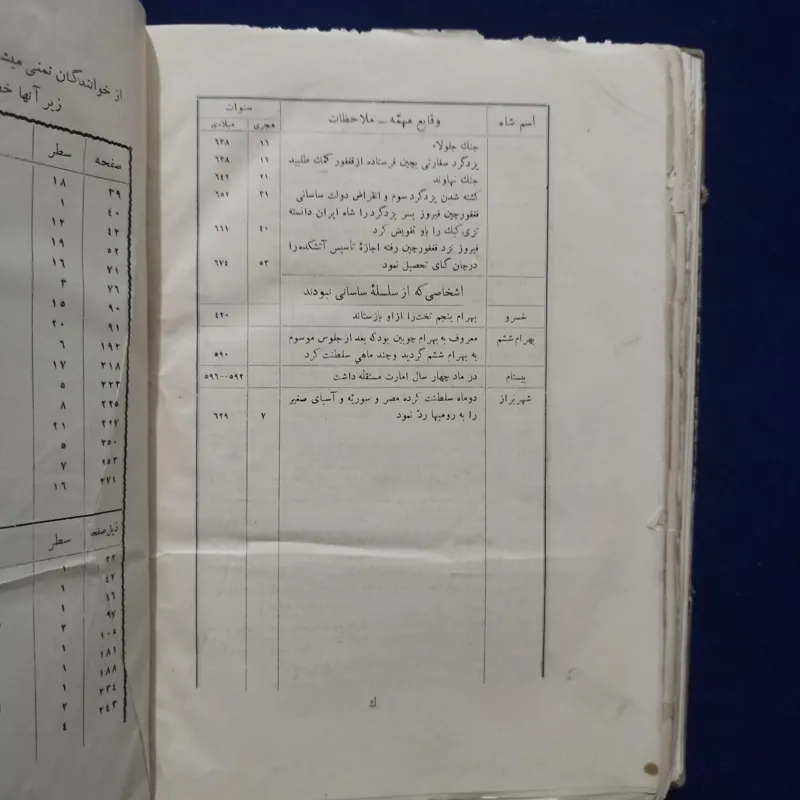 اسم شاه	وقایع مهمّه – ملاحظات	سنوات
هجری	میلادی
جنك جلولاء	۱۶	۶۳۸
یزدگرد سفارتی بچین فرستاده از فغفور كمك طلبید	۱۶	۶۳۸
جنك نهاوند	۲۱	۶۴۲
كشته شدن یزدگرد سوم و انقراض دولت ساسانی	۳۱	۶۵۲
فغفورچین فیروز پسر یزدگرد را شاه ایران دانسته
تزی كیك را باو تفویض كرد	۴۰	۶۶۱
فیروز نزد فغفورچین رفته اجازهٔ تأسیس آتشكده را
درچان گای تحصیل نمود	۵۳	۶۷۴
اشخاصی كه از سلسلهٔ ساسانی نبودند
خسرو	بهرام پنجم تخت را از او بازستاند	۴۲۰
بهرام ششم	معروف به بهرام چوبین بود كه بعد از جلوس موسوم
به بهرام ششم گردید و چند ماهی سلطنت كرد	۵۹۰
بیستام	در ماد چهار سال امارت مستقله داشت	۵۹۲--۵۹۶
شهربراز	دوماه سلطنت كرده مصر و سوریّه و آسیای صغیر
را به رومیها ردّ نمود	۷	۶۲۹
ك
از خوانندگان تمنی میشو
زیر آنها
صفحه	سطر
۳۹	۱۸
۴۰	۱
۴۲	۱۲
۵۲	۱۹
۷۱	۱۶
۷۶	۳
۹۰	۱۵
۹۱	۲۰
۱۹۲	۶
۲۱۸	۱۷
۲۲۳	۵
۲۲۵	۸
۲۴۷	۲۱
۲۵۰	۵
۲۵۳	۷
۲۷۱	۱۶
ذیل صفحه	سطر
۳۳	۱
۴۷	۱
۹۶	۱
۹۷	۱
۱۰۵	۲
۱۸۱	۱
۱۸۸	۱
۲۳۴	۱
۲۴۳	۲
۴